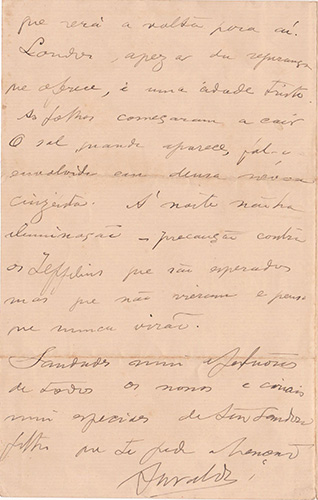 que será a volta para aí.
Londres, apezar da segurança
que oferece, é uma cidade triste.
As folhas começaram a cair
O sol, quando apparece, fal-o
envolvido em densa nevoa
cinzenta. Á noite nenhuma
illuminação - precaução contra
os Zeppelins que são esperados
mas que não vieram e penso
que nunca virão.
Saudades mui affectuosas
de todos os nossos e
mui especiaes de seu
filho que te pede a benção
Oswaldo